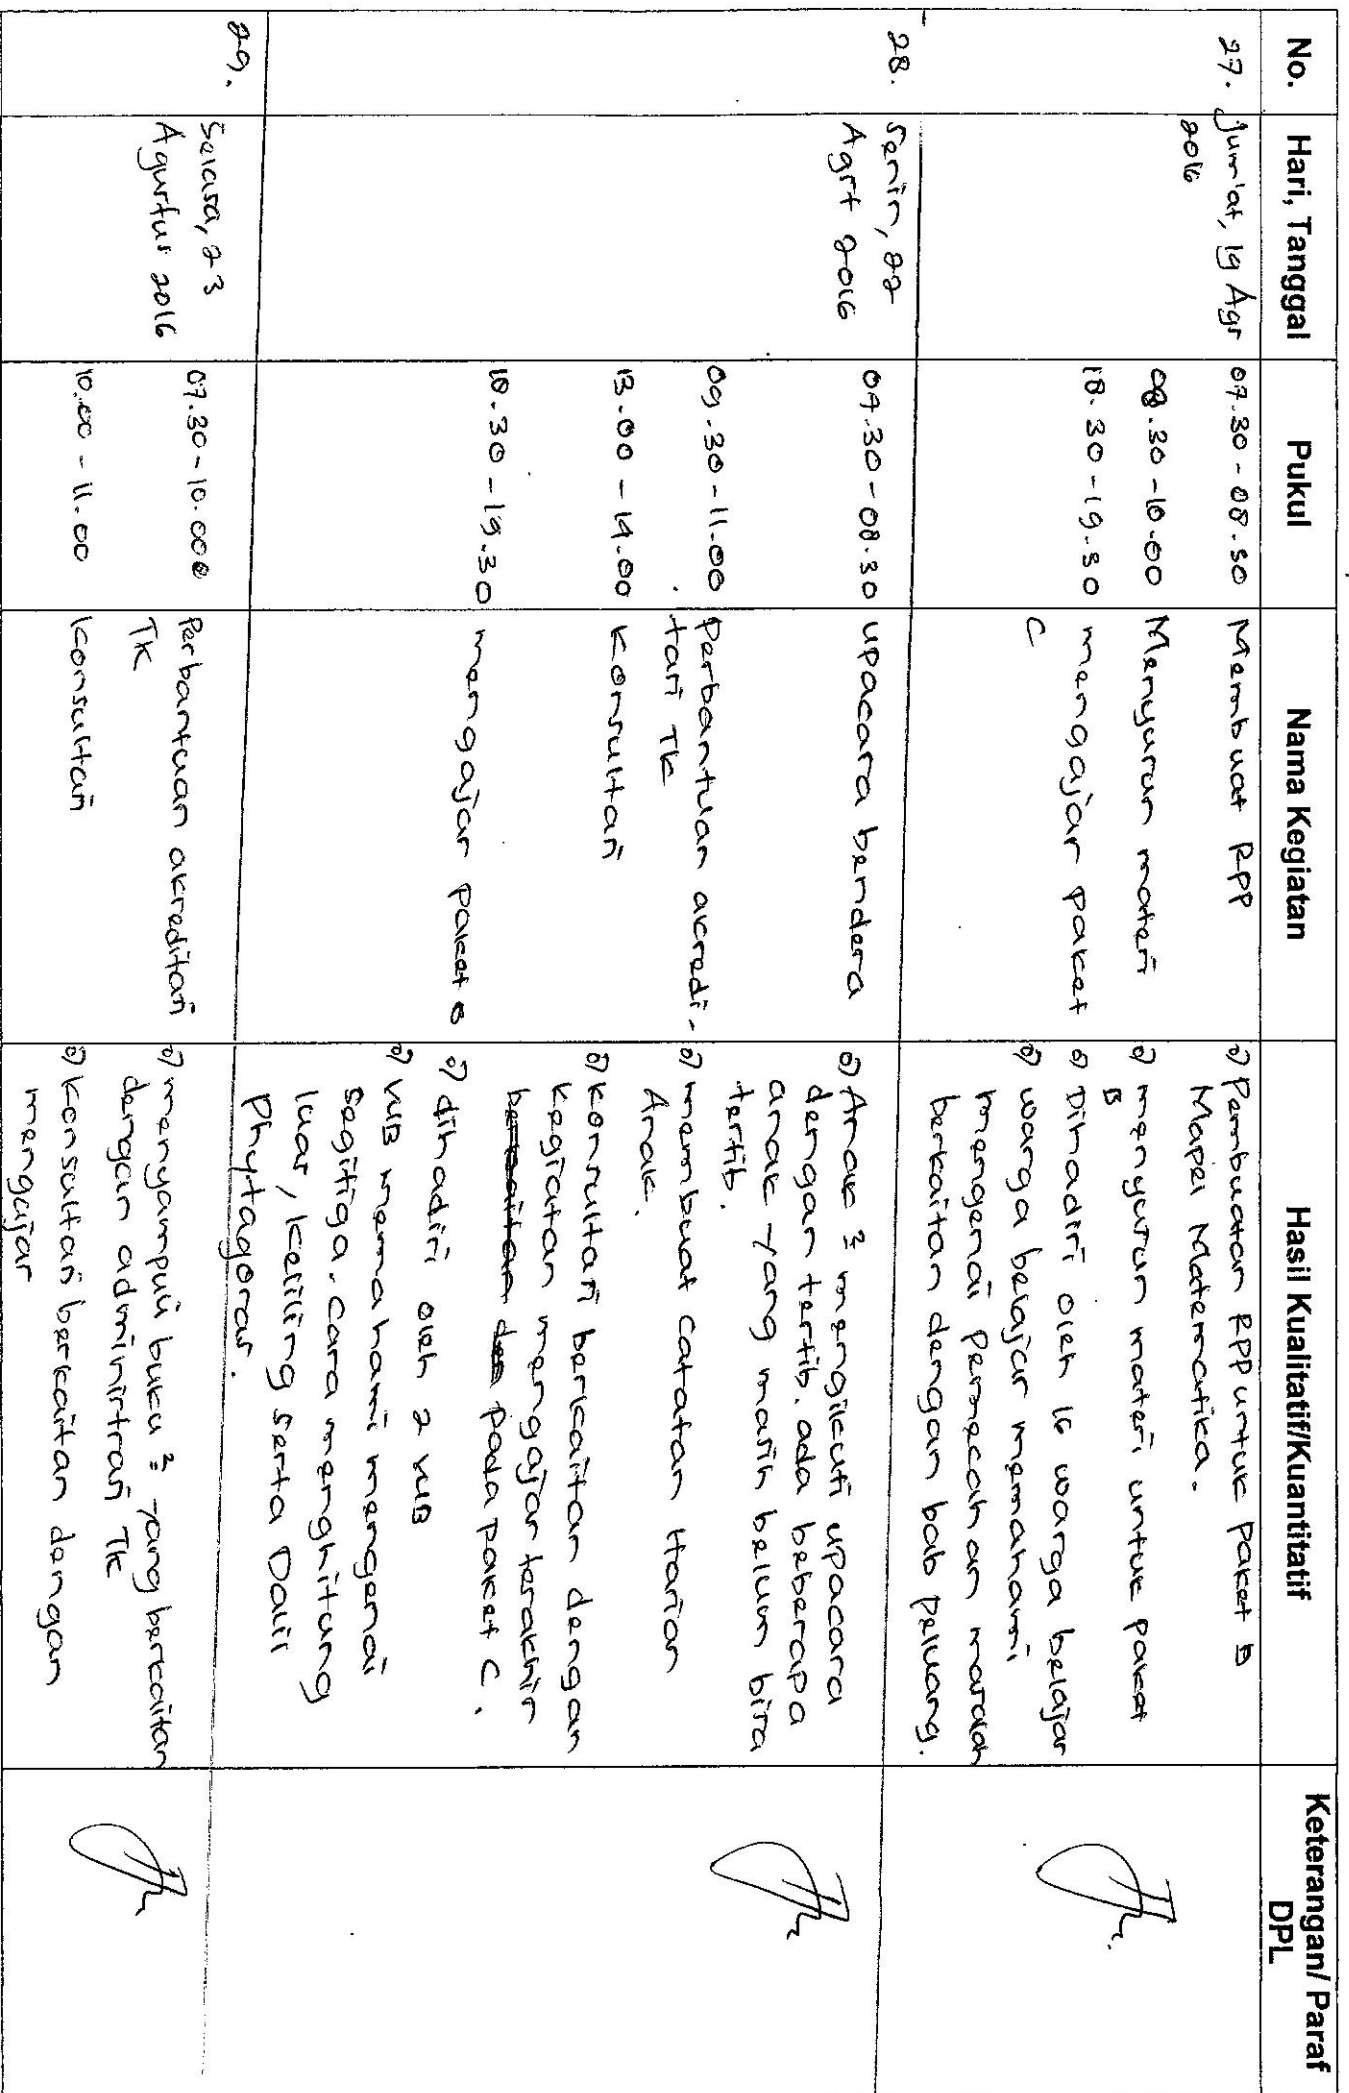 No. Hari, Tanggal Pukul Nama Kegiatan Hasil Kualitatif/Kuantitatif Keterangan/ Paraf
DPL
27. Jum'at, 19 Agr
2016
07.30 - 08.30 Membuat RPP
Pembuatan RPP untuk paket B
Mapel Matematika.
08.30 - 10.00 Menyusun materi
menyusun materi untuk paket
B
18.30 - 19.30 mengajar paket
C
Dihadiri oleh 16 warga belajar
warga belajar memahami
mengenai pemecahan masalah
berkaitan dengan bab peluang.
28. Senin, 22
Agst 2016
07.30 - 08.30 upacara bendera
Anak² mengikuti upacara
dengan tertib. ada beberapa
anak yang masih belum bisa
tertib.
09.30 - 11.00 Perbantuan akredi-
tasi TK
membuat catatan Harian
Anak.
13.00 - 14.00 Konsultasi
Konsultasi berkaitan dengan
kegiatan mengajar terakhir
berkaitan den pada paket C.
18.30 - 19.30 mengajar paket B
dihadiri oleh 2 WB
WB memahami mengenai
segitiga. cara menghitung
luas, keliling serta Dalil
Phytagoras.
29. Selasa, 23
Agustus 2016
07.30 - 10.00 Perbantuan akreditasi
TK
menyampuli buku² yang berkaitan
dengan administrasi TK
10.00 - 11.00 Konsultasi
Konsultasi berkaitan dengan
mengajar